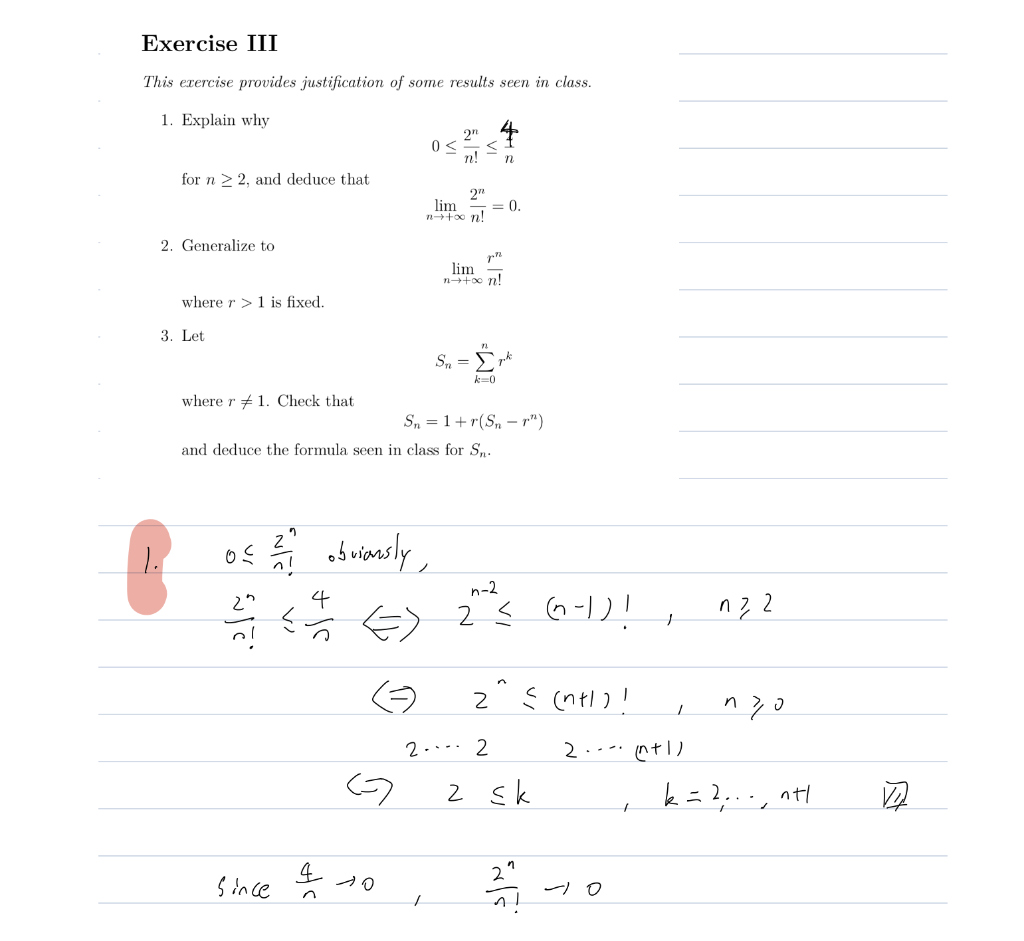 Exercise III
This exercise provides justification of some results seen in class.
1. Explain why
0 ≤ 2^n/n! ≤ 4/n
for n ≥ 2, and deduce that
lim_{n→+∞} 2^n/n! = 0.
2. Generalize to
lim_{n→+∞} r^n/n!
where r > 1 is fixed.
3. Let
S_n = ∑_{k=0}^{n} r^k
where r ≠ 1. Check that
S_n = 1 + r(S_n − r^n)
and deduce the formula seen in class for S_n.
1. 0 ≤ 2^n/n! obviously,
2^n/n! ≤ 4/n ⟺ 2^{n-2} ≤ (n-1)! , n ≥ 2
⟺ 2^n ≤ (n+1)! , n ≥ 0
2 .... 2 2 ..... (n+1)
⟺ 2 ≤ k , k = 2, ..., n+1
Since 4/n → 0 , 2^n/n! → 0